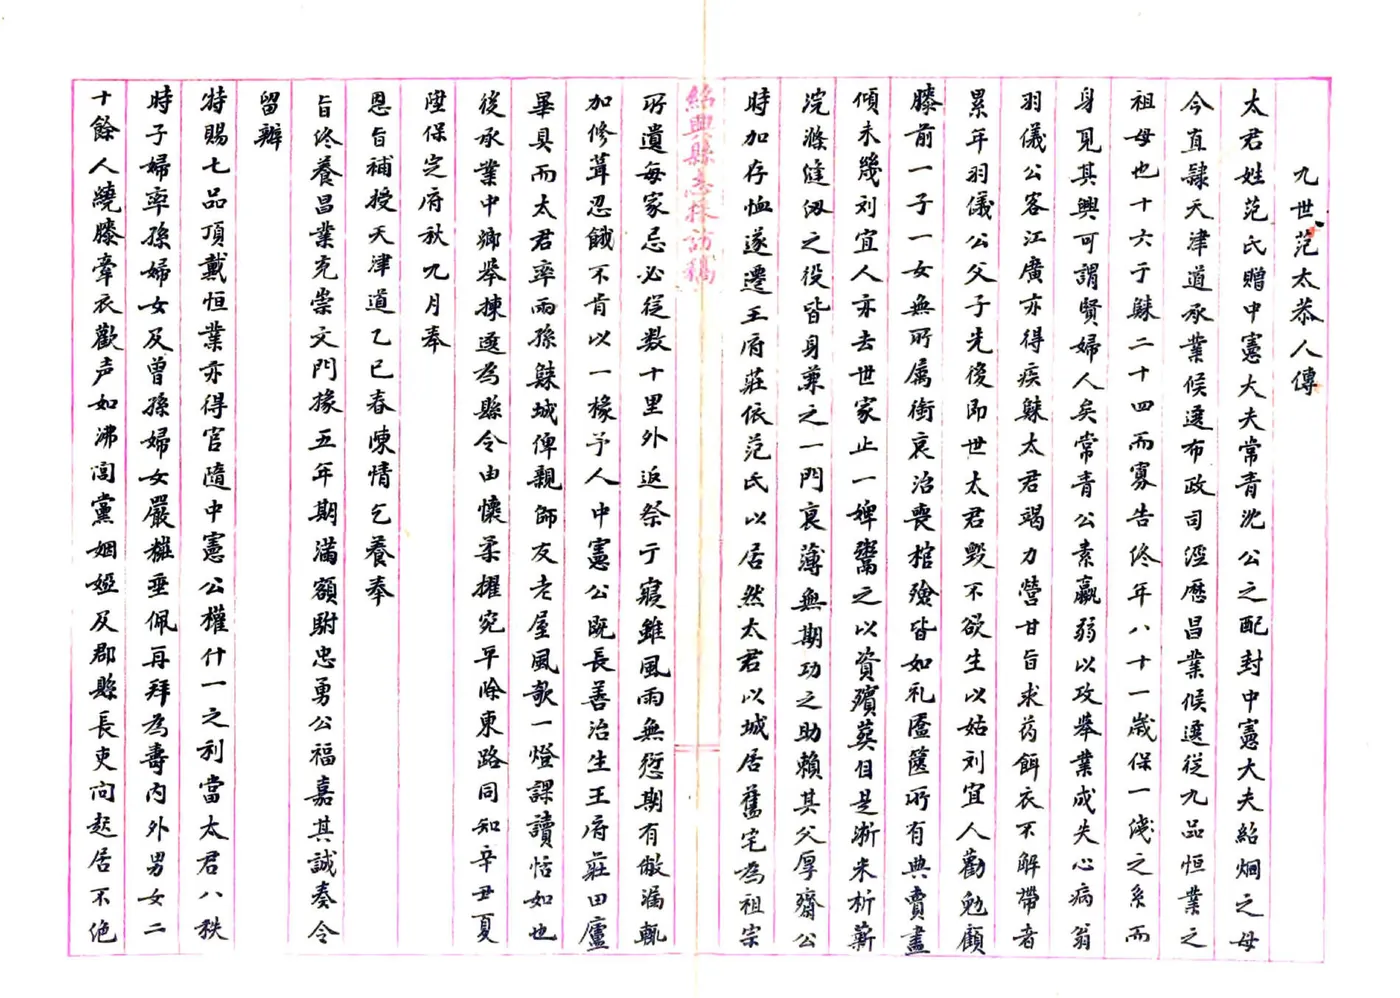 九世范太恭人傳
太君姓范氏贈中憲大夫常青沈公之配封中憲大夫紹烱之母
今直隸天津道承業候選布政司經歷昌業候選從九品恒業之
祖母也十六于歸二十四而寡告終年八十一歲保一綫之系而
身見其興可謂賢婦人矣常青公素羸弱以攻舉業成失心病翁
羽儀公客江廣亦得疾歸太君竭力營甘旨求药餌衣不解帶者
累年羽儀公父子先後即世太君毀不欲生以姑刘宜人勸勉顧
膝前一子一女無所属銜哀治喪棺殮皆如礼匳篋所有典賣盡
傾未幾刘宜人亦去世家止一婢鬻之以資殯葬自是淅米析薪
浣滌縫纫之役皆身兼之一門衰薄無期功之助賴其父厚齋公
時加存恤遂遷王府莊依范氏以居然太君以城居舊宅為祖宗
紹興縣志採訪稿
所遺每家忌必従数十里外返祭于寢雖風雨無愆期有敝漏輒
加修葺忍餓不肯以一椽予人中憲公既長善治生王府莊田廬
畢具而太君率兩孫歸城俾親師友老屋風欹一燈課讀恬如也
後承業中鄉舉揀選為縣令由懷柔擢宛平除東路同知辛丑夏
陞保定府秋九月奉
恩旨補授天津道乙巳春陳情乞養奉
旨终養昌業充崇文門掾五年期滿額駙忠勇公福嘉其誠奏令
留辦
特賜七品頂戴恒業亦得官隨中憲公權什一之利當太君八秩
時子婦率孫婦女及曾孫婦女嚴粧垂佩再拜為壽内外男女二
十餘人繞膝牽衣歡声如沸闾黨姻婭及郡縣長吏问起居不绝